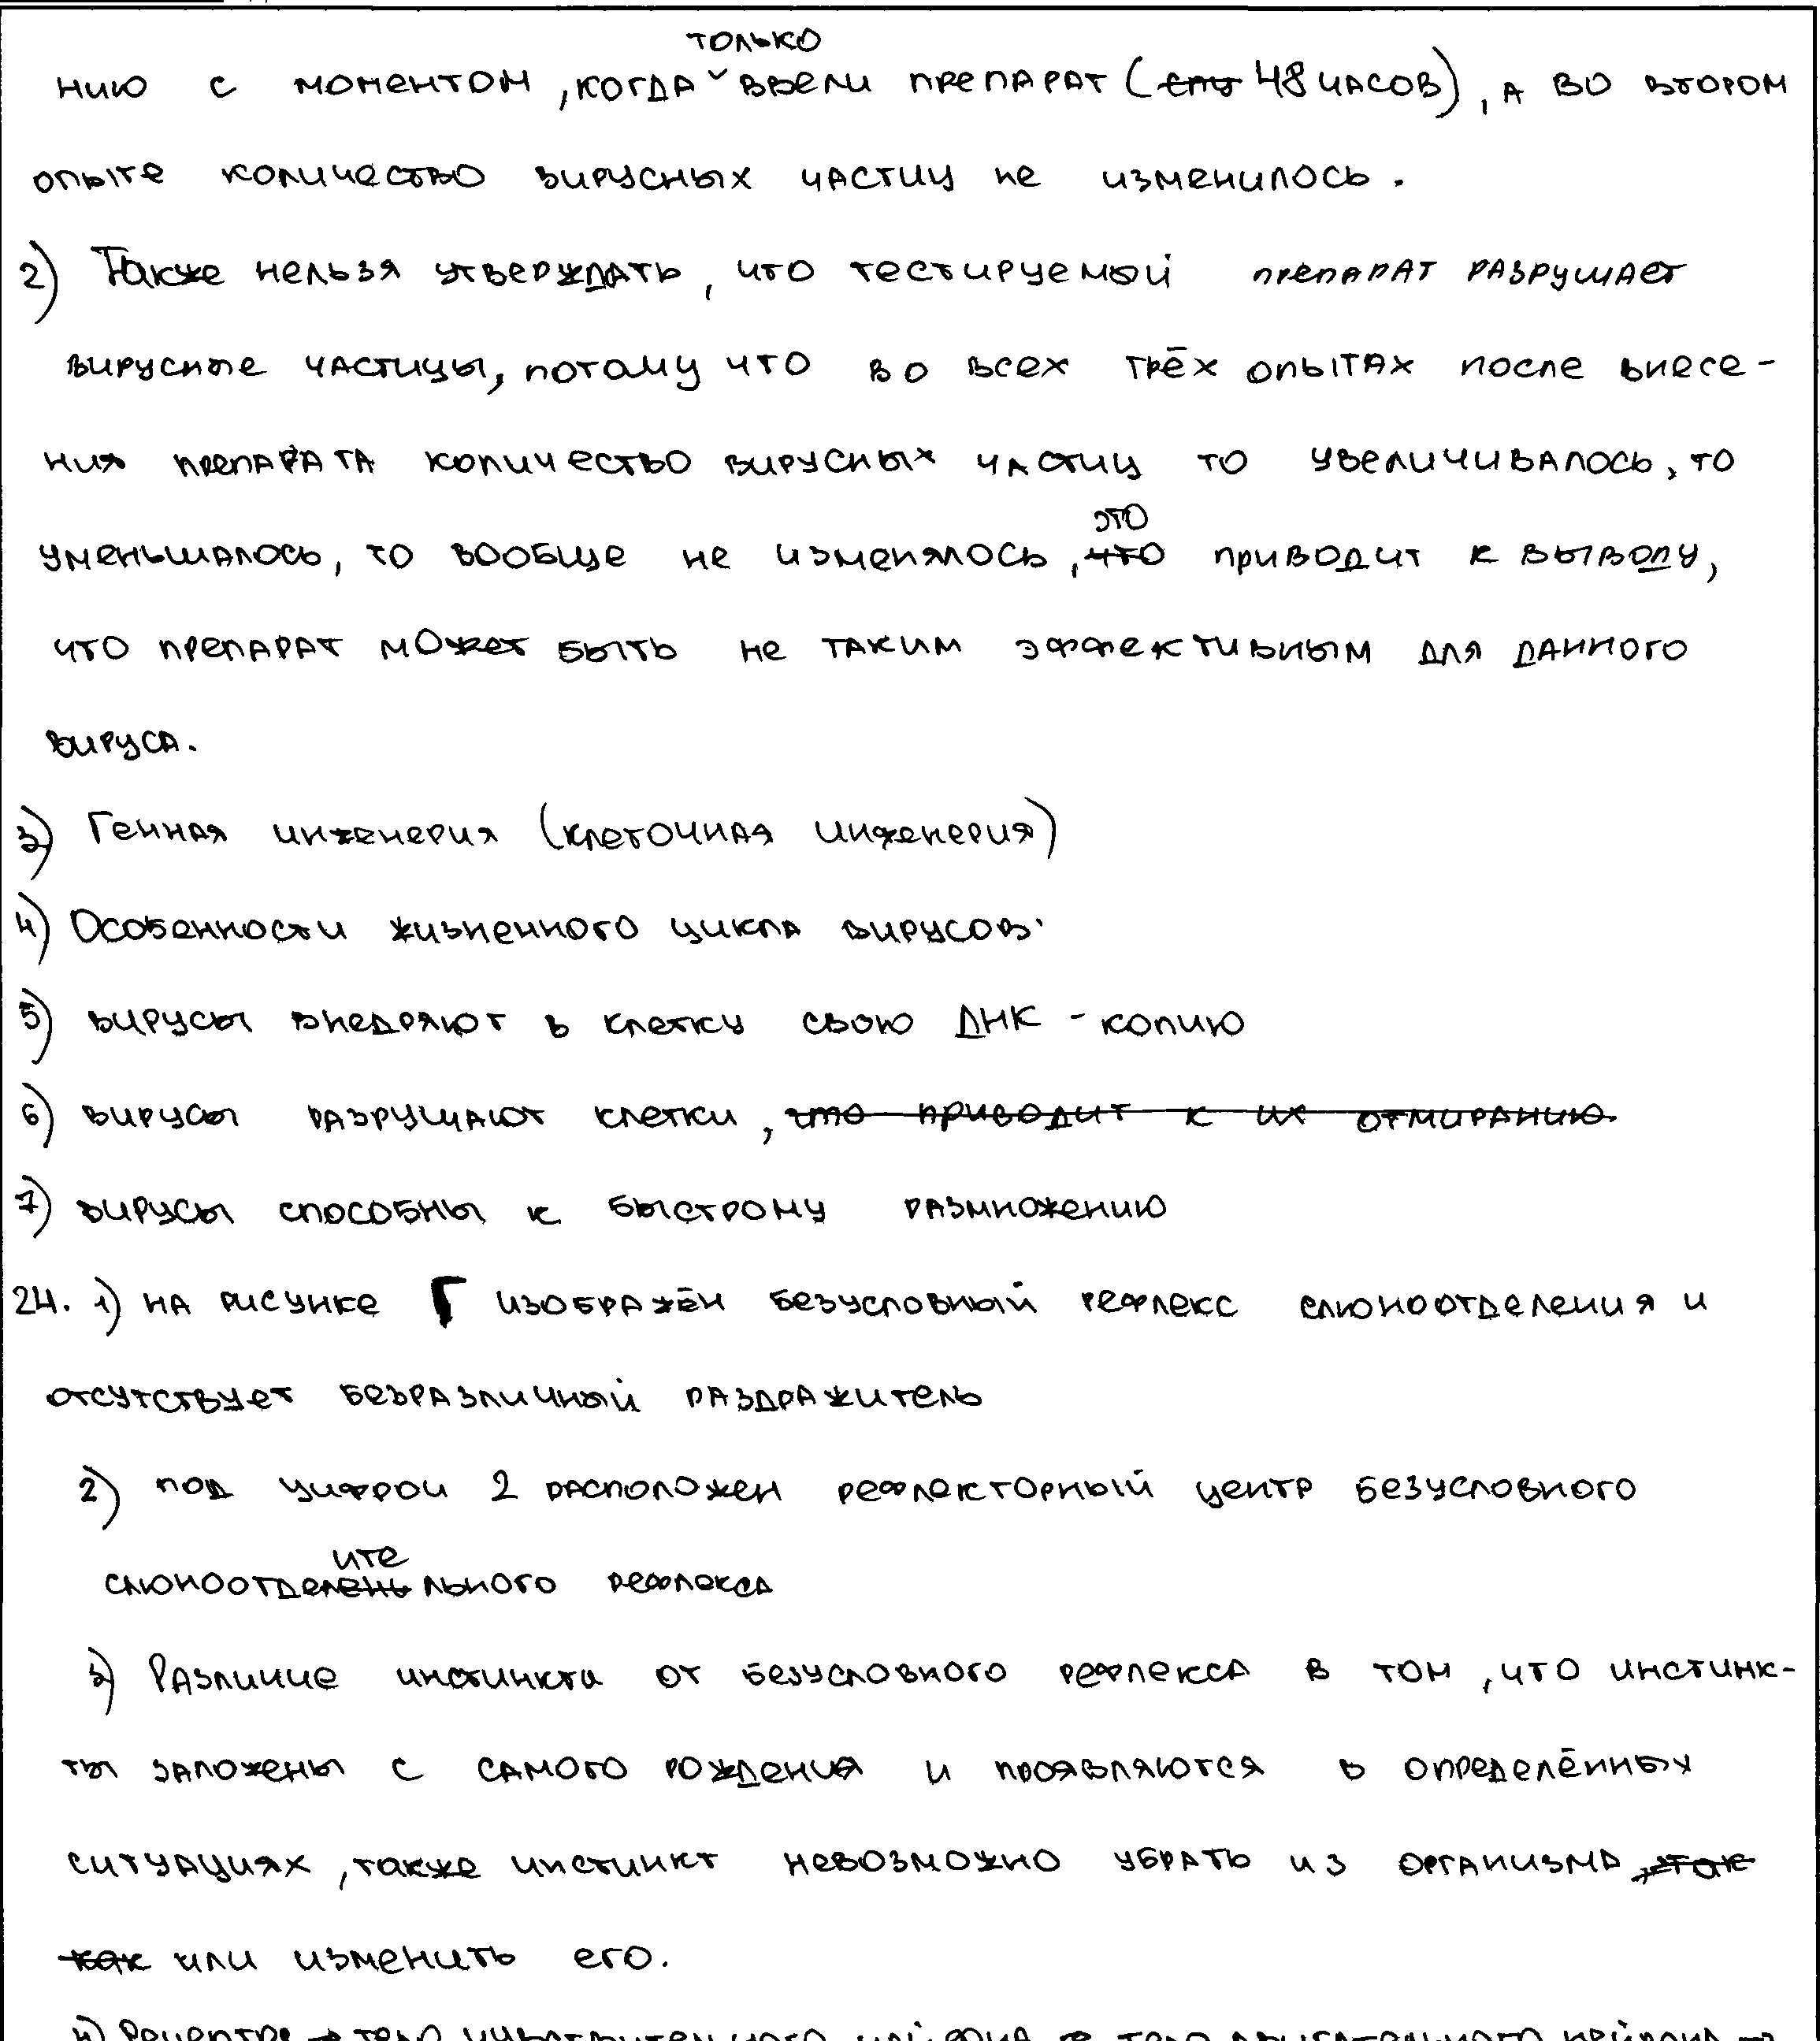 нию с моментом, когда только ввели препарат (48 часов), а во втором
опыте количество вирусных частиц не изменилось.
2) Также нельзя утверждать, что тестируемый препарат разрушает
вирусные частицы, потому что во всех трёх опытах после внесе-
ния препарата количество вирусных частиц то увеличивалось, то
уменьшалось, то вообще не изменялось, это приводит к выводу,
что препарат может быть не таким эффективным для данного
вируса.
3) Генная инженерия (клеточная инженерия)
4) Особенности жизненного цикла вирусов:
5) вирусы внедряют в клетку свою ДНК - копию
6) вирусы разрушают клетки, что приводит к их отмиранию.
7) вирусы способны к быстрому размножению
24. 1) на рисунке Г изображён безусловный рефлекс слюноотделения и
отсутствует безразличный раздражитель
2) под цифрой 2 расположен рефлекторный центр безусловного
слюноотделительного рефлекса
3) Различие инстинкта от безусловного рефлекса в том, что инстинк-
ты заложены с самого рождения и проявляются в определённых
ситуациях, также инстинкт невозможно убрать из организма, так
как или изменить его.
4) Рецептор → тело чувствительного нейрона → тело двигательного нейрона →